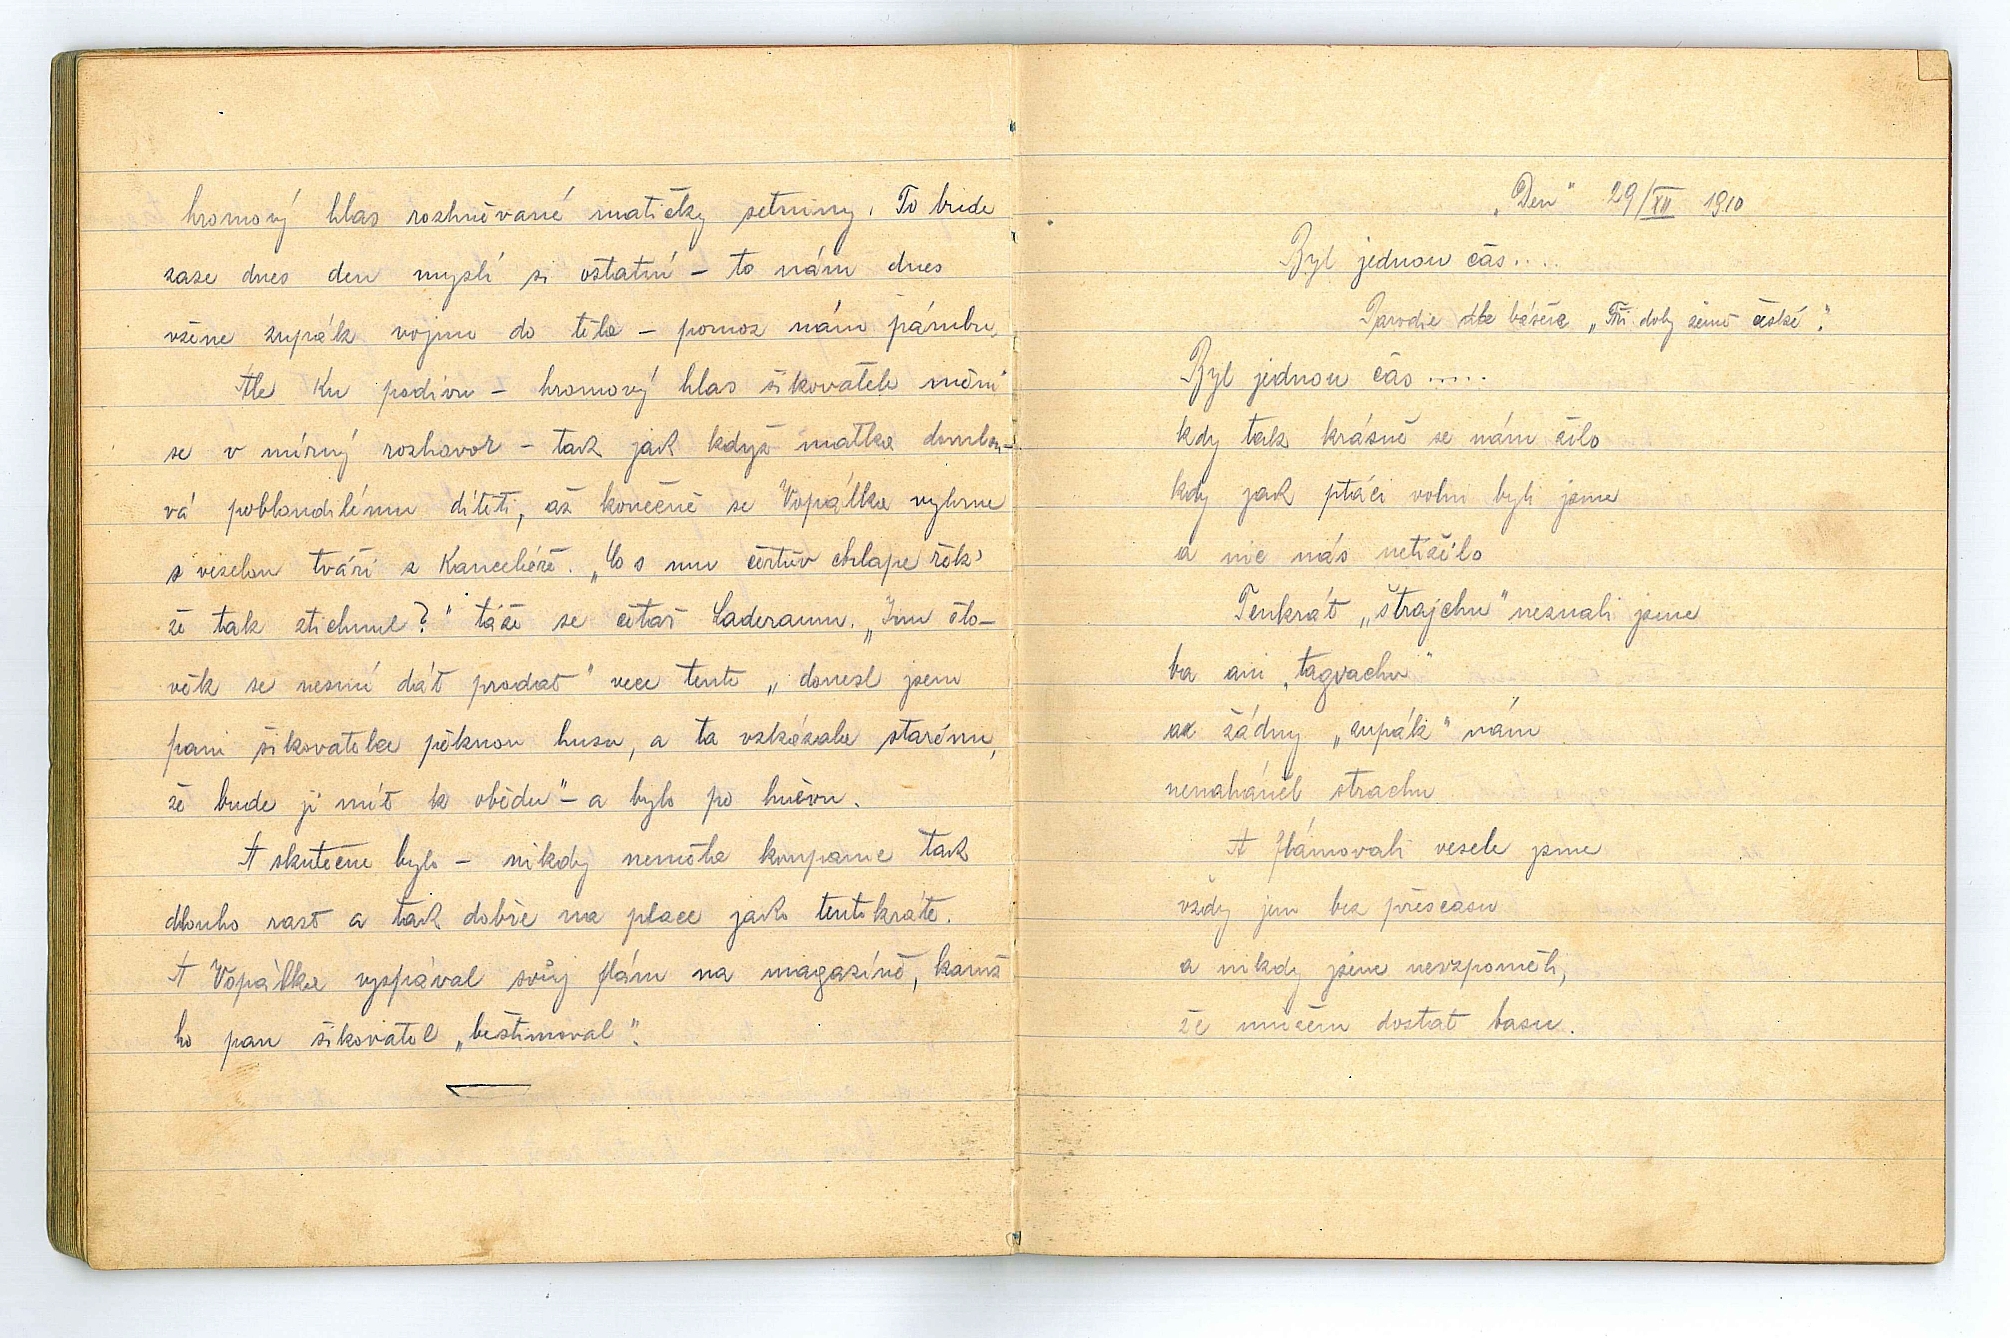 hromový hlas rozhněvané matičky setniny. To bude
zase dnes den myslí si ostatní – to nám dnes
vžene zupák vojnu do těla – pomoz nám pámbu.
Ale ku podivu – hromový hlas šikovatele mění
se v mírný rozhovor – tak jak když matka domlou-
vá pobloudilému dítěti, až konečně se Vopálka vyhrne
s veselou tváří z kanceléře. „Co s mu čertův chlape řek'
že tak ztichnul?" táže se četař Laderamu. „Inu člo-
věk se nesmí dát prodat" vece tento „donesl jsem
paní šikovatelce pěknou husu, a ta vzkázala starému,
že bude ji mít k obědu" – a bylo po hněvu.
A skutečne bylo – nikdy neměla kompanie tak
dlouho rast a tak dobře na place jako tentokráte.
A Vopálka vyspával svůj flám na magazíně, kamž
ho pan šikovatel „beštimoval".
„Den" 29/XII 1910
Byl jednou čas....
Parodie dle básně „Tři doby země české".
Byl jednou čas .....
kdy tak krásně se nám žilo
kdy jak ptáci volni byli jsme
a nic nás netížilo
Tenkrát „štrajchu" neznali jsme
ba ani „tagvachu"
a žádny „zupák" nám
nenaháněl strachu
A flámovali vesele jsme
vždy jen bez přesčasu
a nikdy jsme nevzpoměli,
že můžem dostat basu.